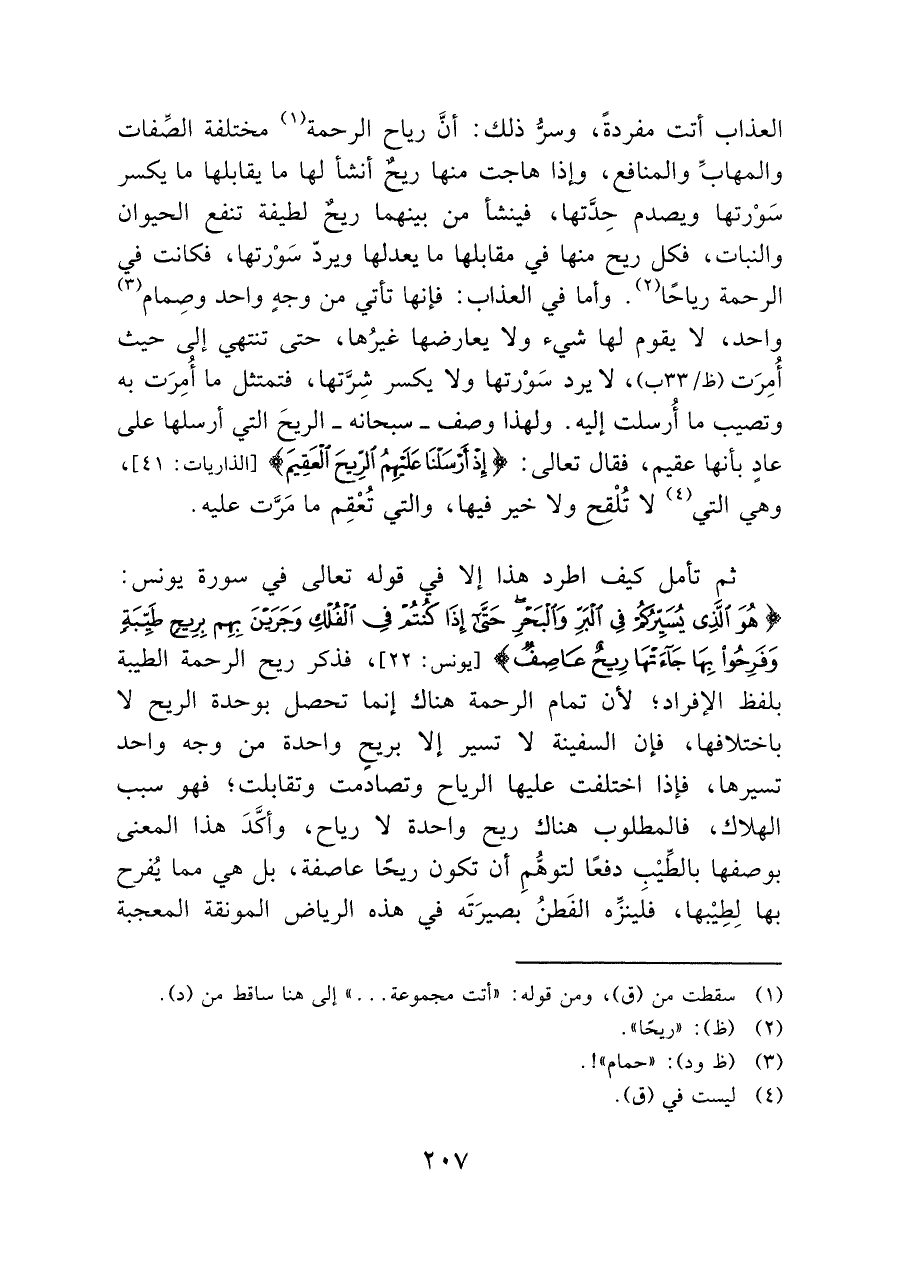 العذاب أتت مفردةً، وسرُّ ذلك: أنَّ رياح الرحمة(١) مختلفة الصِّفات
والمهابِّ والمنافع، وإذا هاجت منها ريحٌ أنشأ لها ما يقابلها ما يكسر
سَوْرتها ويصدم حِدَّتها، فينشأ من بينهما ريحٌ لطيفة تنفع الحيوان
والنبات، فكل ريح منها في مقابلها ما يعدلها ويردّ سَوْرتها، فكانت في
الرحمة رياحًا(٢). وأما في العذاب: فإنها تأتي من وجهٍ واحد وصِمام(٣)
واحد، لا يقوم لها شيء ولا يعارضها غيرُها، حتى تنتهي إلى حيث
أُمِرَت (ظ/٣٣ب)، لا يرد سَوْرتها ولا يكسر شِرَّتها، فتمتثل ما أُمِرَت به
وتصيب ما أُرسلت إليه. ولهذا وصف ـ سبحانه ـ الريحَ التي أرسلها على
عادٍ بأنها عقيم، فقال تعالى: ﴿إِذْ أَرْسَلْنَا عَلَيْهِمُ ٱلرِّيحَ ٱلْعَقِيمَ﴾ [الذاريات: ٤١]،
وهي التي(٤) لا تُلْقِح ولا خير فيها، والتي تُعْقِم ما مَرَّت عليه.
ثم تأمل كيف اطرد هذا إلا في قوله تعالى في سورة يونس:
﴿هُوَ ٱلَّذِى يُسَيِّرُكُمْ فِى ٱلْبَرِّ وَٱلْبَحْرِ ۖ حَتَّىٰٓ إِذَا كُنتُمْ فِى ٱلْفُلْكِ وَجَرَيْنَ بِهِم بِرِيحٍ طَيِّبَةٍ
وَفَرِحُوا۟ بِهَا جَآءَتْهَا رِيحٌ عَاصِفٌ﴾ [يونس: ٢٢]، فذكر ريح الرحمة الطيبة
بلفظ الإفراد؛ لأن تمام الرحمة هناك إنما تحصل بوحدة الريح لا
باختلافها، فإن السفينة لا تسير إلا بريحٍ واحدة من وجه واحد
تسيرها، فإذا اختلفت عليها الرياح وتصادمت وتقابلت؛ فهو سبب
الهلاك، فالمطلوب هناك ريح واحدة لا رياح، وأكَّدَ هذا المعنى
بوصفها بالطِّيْبِ دفعًا لتوهُّمِ أن تكون ريحًا عاصفة، بل هي مما يُفرح
بها لِطِيْبها، فلينزِّه الفَطنُ بصيرَتَه في هذه الرياض المونقة المعجبة
(١) سقطت من (ق)، ومن قوله: «أتت مجموعة...» إلى هنا ساقط من (د).
(٢) (ظ): «ريحًا».
(٣) (ظ ود): «حمام»!.
(٤) ليست في (ق).
٢٠٧